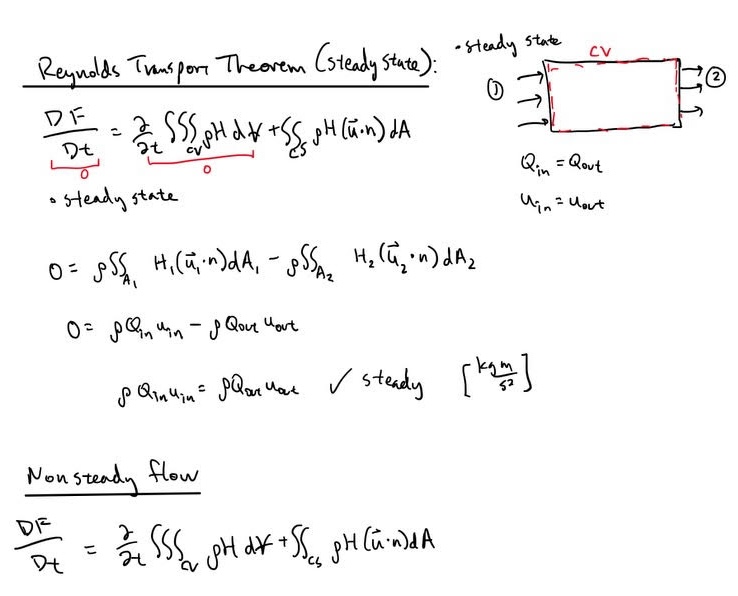 Reynolds Transport Theorem (steady state):
• steady state
CV
①
②
DF/Dt = ∂/∂t ∭_CV ρH dV + ∬_CS ρH(u⃗·n)dA
0
0
Q_in = Q_out
• steady state
u_in = u_out
0 = ρ∬_A₁ H₁(u⃗₁·n)dA₁ − ρ∬_A₂ H₂(u⃗₂·n)dA₂
0 = ρQ_in u_in − ρQ_out u_out
ρQ_in u_in = ρQ_out u_out ✓ steady [kg m/s²]
Nonsteady flow
DF/Dt = ∂/∂t ∭_CV ρH dV + ∬_CS ρH(u⃗·n)dA